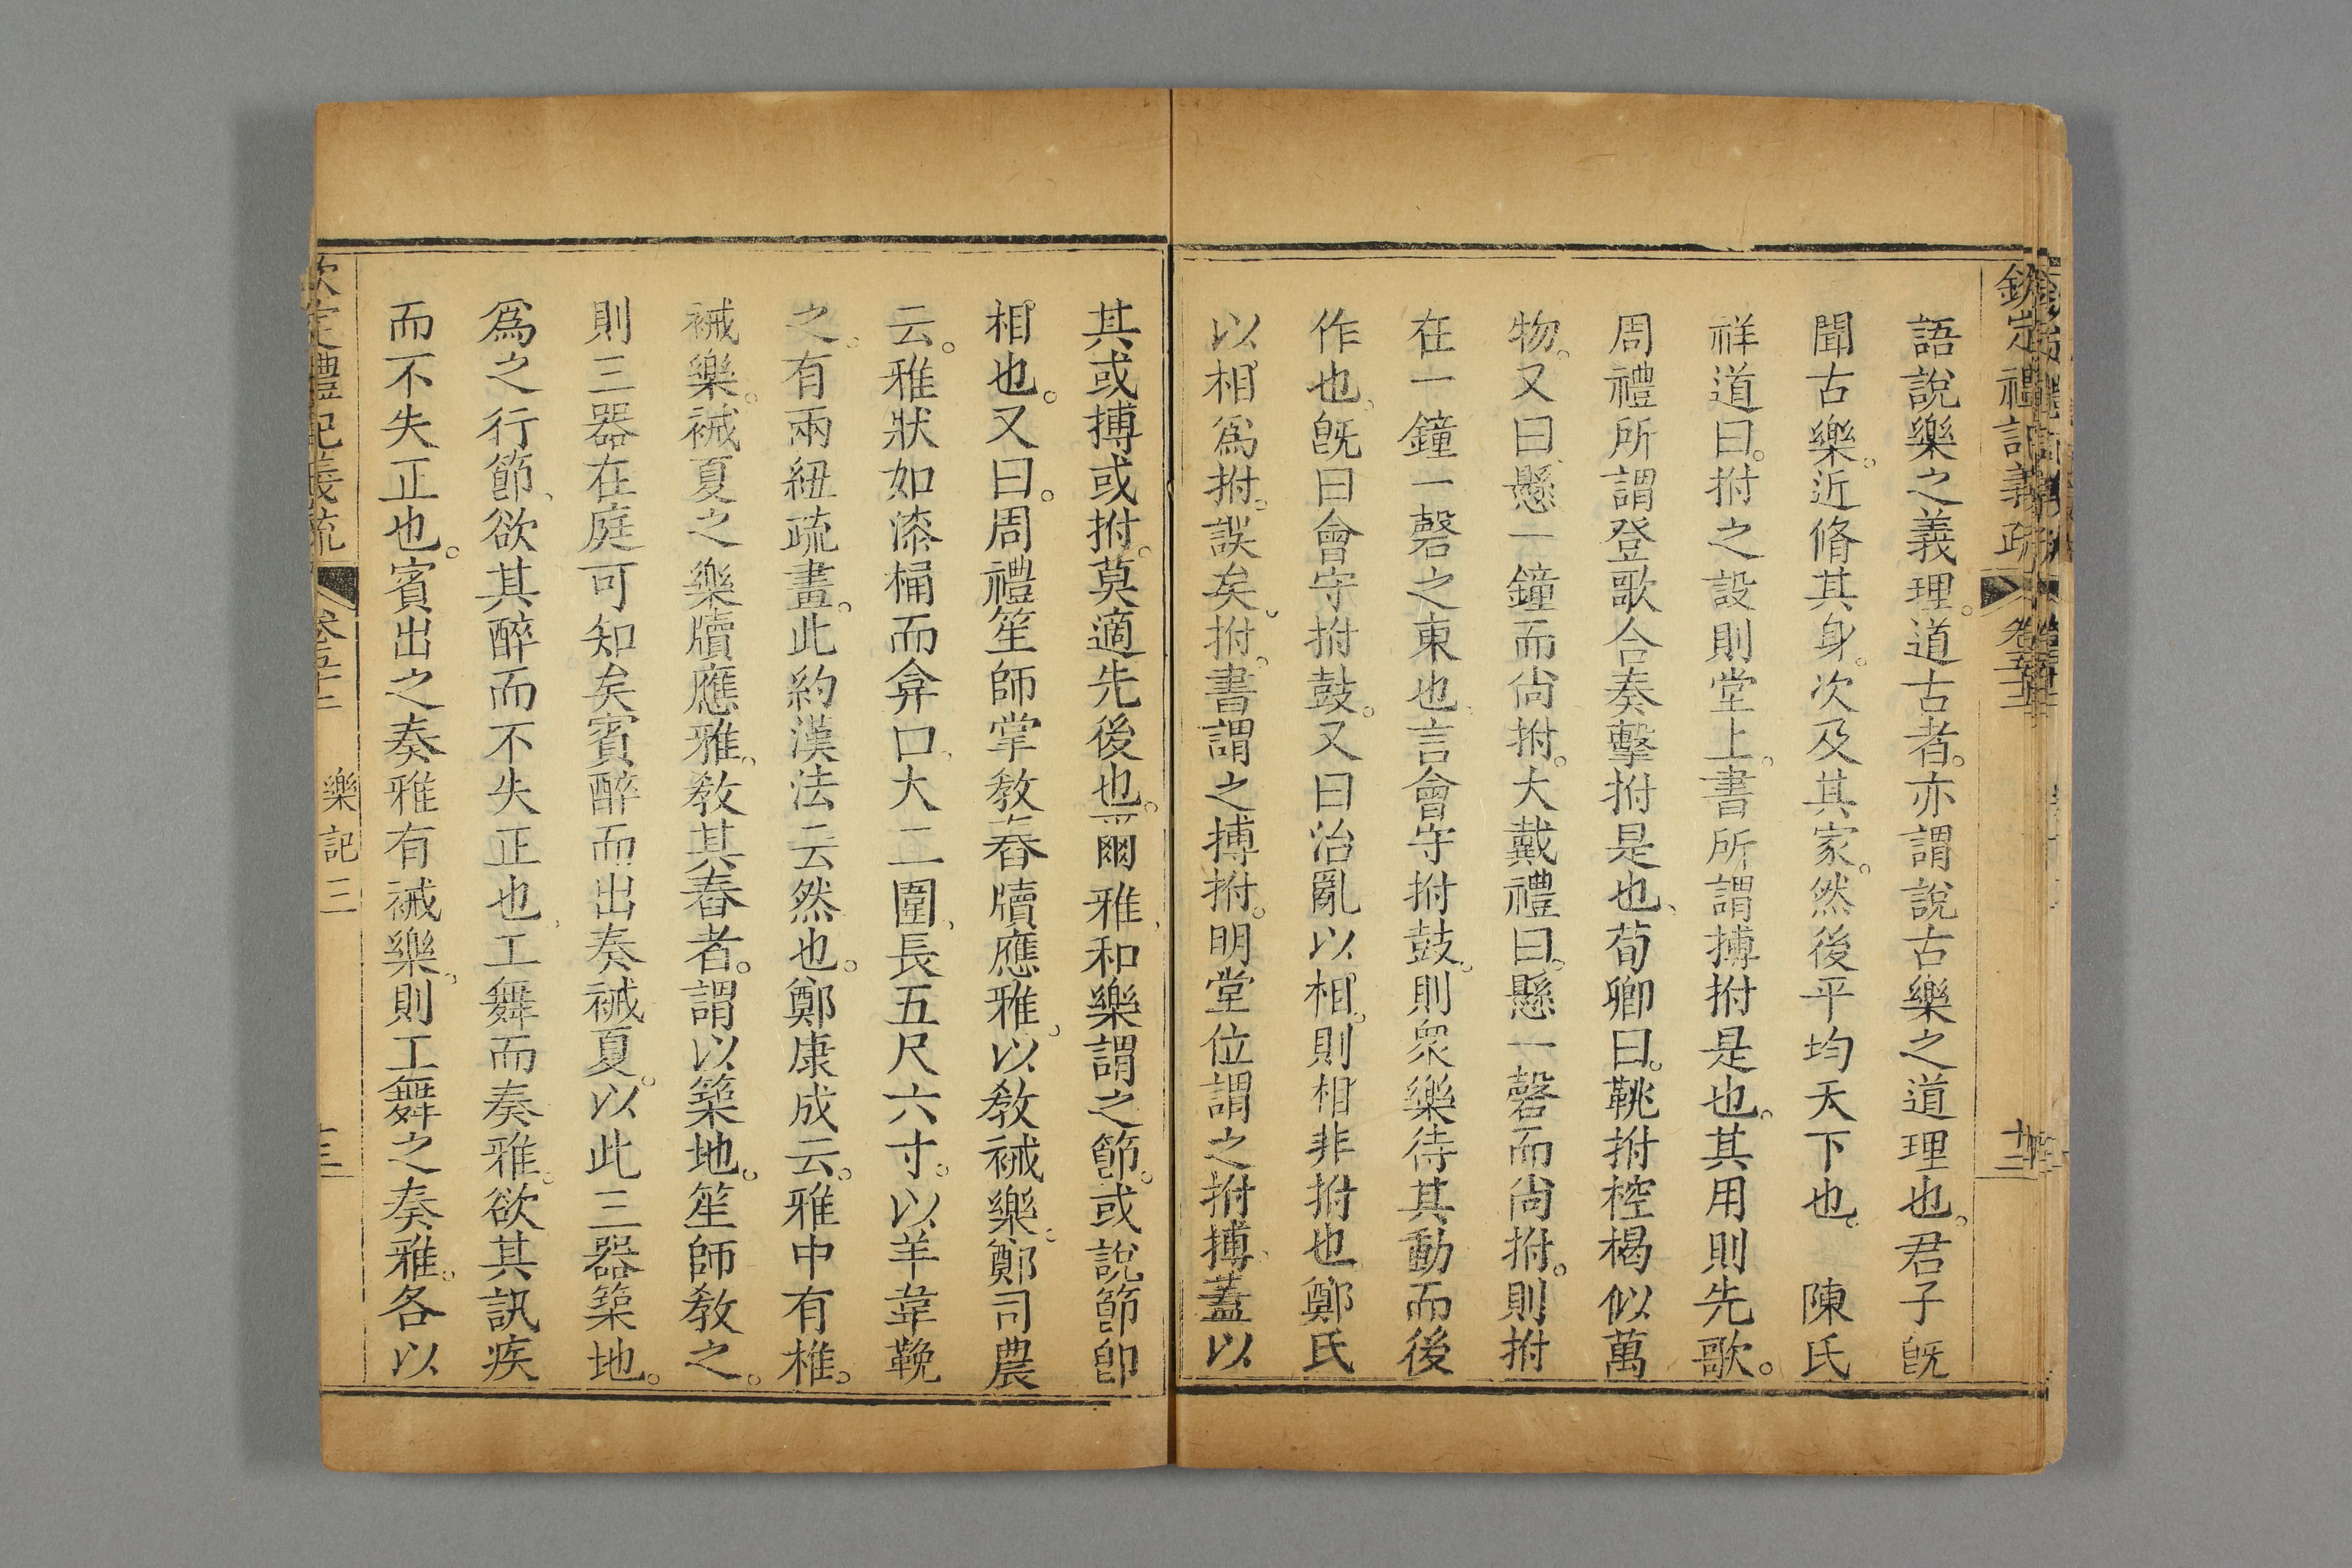 欽定禮記義疏 卷五十二 十二
語說樂之義理。道古者。亦謂說古樂之道理也。君子旣
聞古樂。近脩其身。次及其家。然後平均天下也。 陳氏
祥道曰。拊之設則堂上。書所謂搏拊是也。其用則先歌。
周禮所謂登歌合奏擊拊是也、荀卿曰。鞉拊椌楬似萬
物。又曰、懸一鐘而尙拊。大戴禮曰。懸一磬而尙拊。則拊
在一鐘一磬之東也、言會守拊鼓。則衆樂待其動而後
作也、旣曰會守拊鼓。又曰治亂以相。則相非拊也鄭氏
以相爲拊。誤矣、拊。書謂之搏拊。明堂位謂之拊搏、蓋以
其或搏或拊。莫適先後也。爾雅、和樂謂之節。或說節卽
相也。又曰。周禮笙師掌敎舂牘應雅、以敎祴樂、鄭司農
云。雅狀如漆桶而弇口、大二圍、長五尺六寸。以羊韋鞔
之。有兩紐疏畫。此約漢法云然也。鄭康成云。雅中有椎。
祴樂。祴夏之樂牘應雅、敎其舂者。謂以築地。笙師敎之。
則三器在庭可知矣賓醉而出奏祴夏。以此三器築地。
爲之行節、欲其醉而不失正也、工舞而奏雅。欲其訊疾
而不失正也。賓出之奏雅有祴樂、則工舞之奏雅。各以
欽定禮記義疏 卷五十二 樂記 三 十三